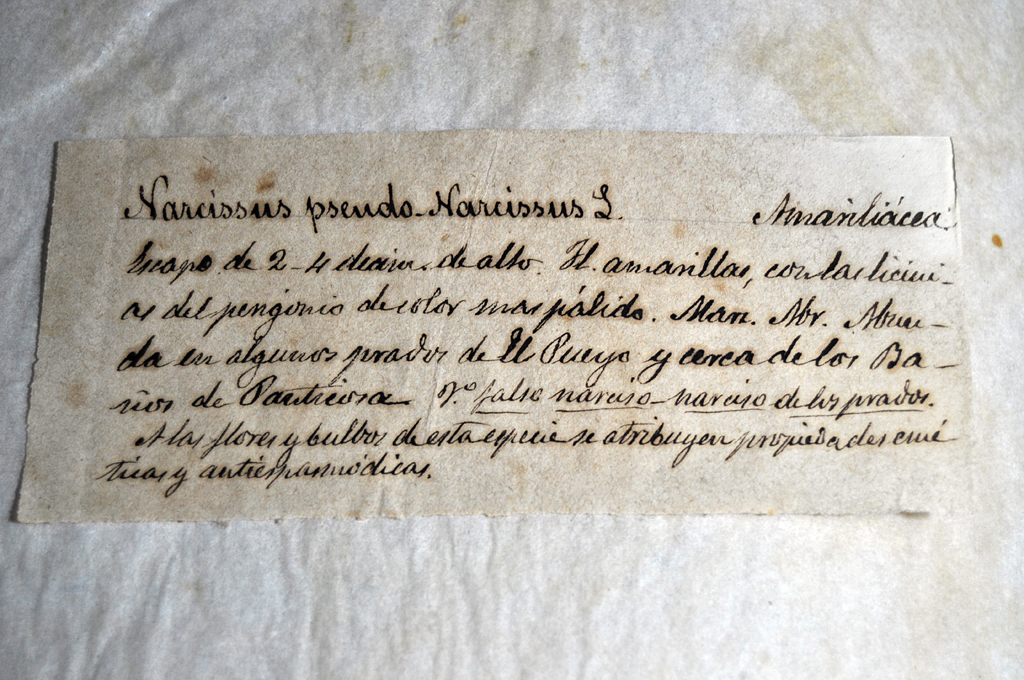 Narcissus pseudo-Narcissus L. Amariliácea.
Escapo de 2-4 decim. de alto. Fl. amarillas, con las licini-
as del perigonio de color mas pálido. Marz. Abr. Abun-
da en algunos prados de El Pueyo y cerca de los Ba-
ños de Panticosa. V.º falso narciso narciso de los prados.
A las flores y bulbos de esta especie se atribuyen propiedades emé
ticas y antiespasmódicas.